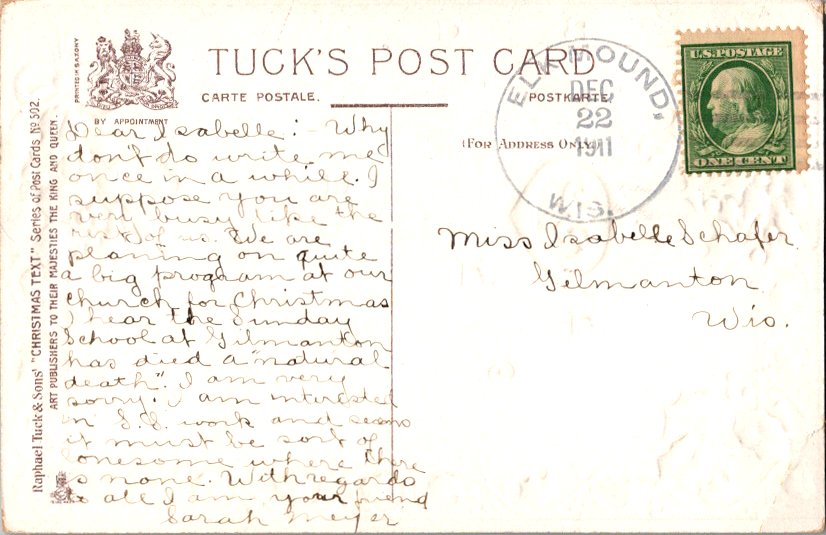 TUCK'S POST CARD
CARTE POSTALE.
POSTKARTE.
(FOR ADDRESS ONLY.)
BY APPOINTMENT
PRINTED IN SAXONY
Raphael Tuck & Sons' "CHRISTMAS TEXT" Series of Post Cards, No 502.
ART PUBLISHERS TO THEIR MAJESTIES THE KING AND QUEEN.
ELK MOUND,
DEC
22
1911
WIS.
U.S. POSTAGE
ONE CENT
Dear Isabelle:- Why
don't do write me
once in a while. I
suppose you are
very busy like the
rest of us. We are
planing on quite
a big program at our
church for Christmas
I hear the Sunday
School at Gilmanton
has died a "natural
death". I am very
sorry. I am interested
in S.S. work and seems
it must be sort of
lonesome where there
is none. With regards
to all I am your friend
Sarah Meyer
Miss Isabelle Schafer
Gilmanton
Wis.